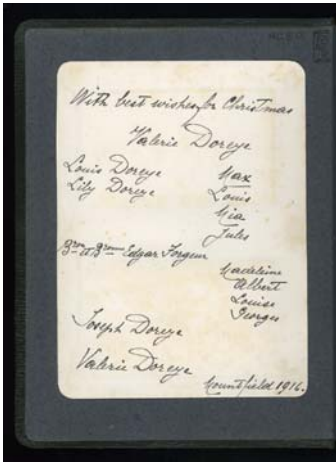 With best wishes for Christmas
Valerie Doreye
Louis Doreye Max
Lily Doreye Louis
Mia
Jules
Bron et Bronne Edgar Forgeur
Madeleine
Albert
Louise
Georges
Joseph Doreye
Valerie Doreye
Mountfield 1916.